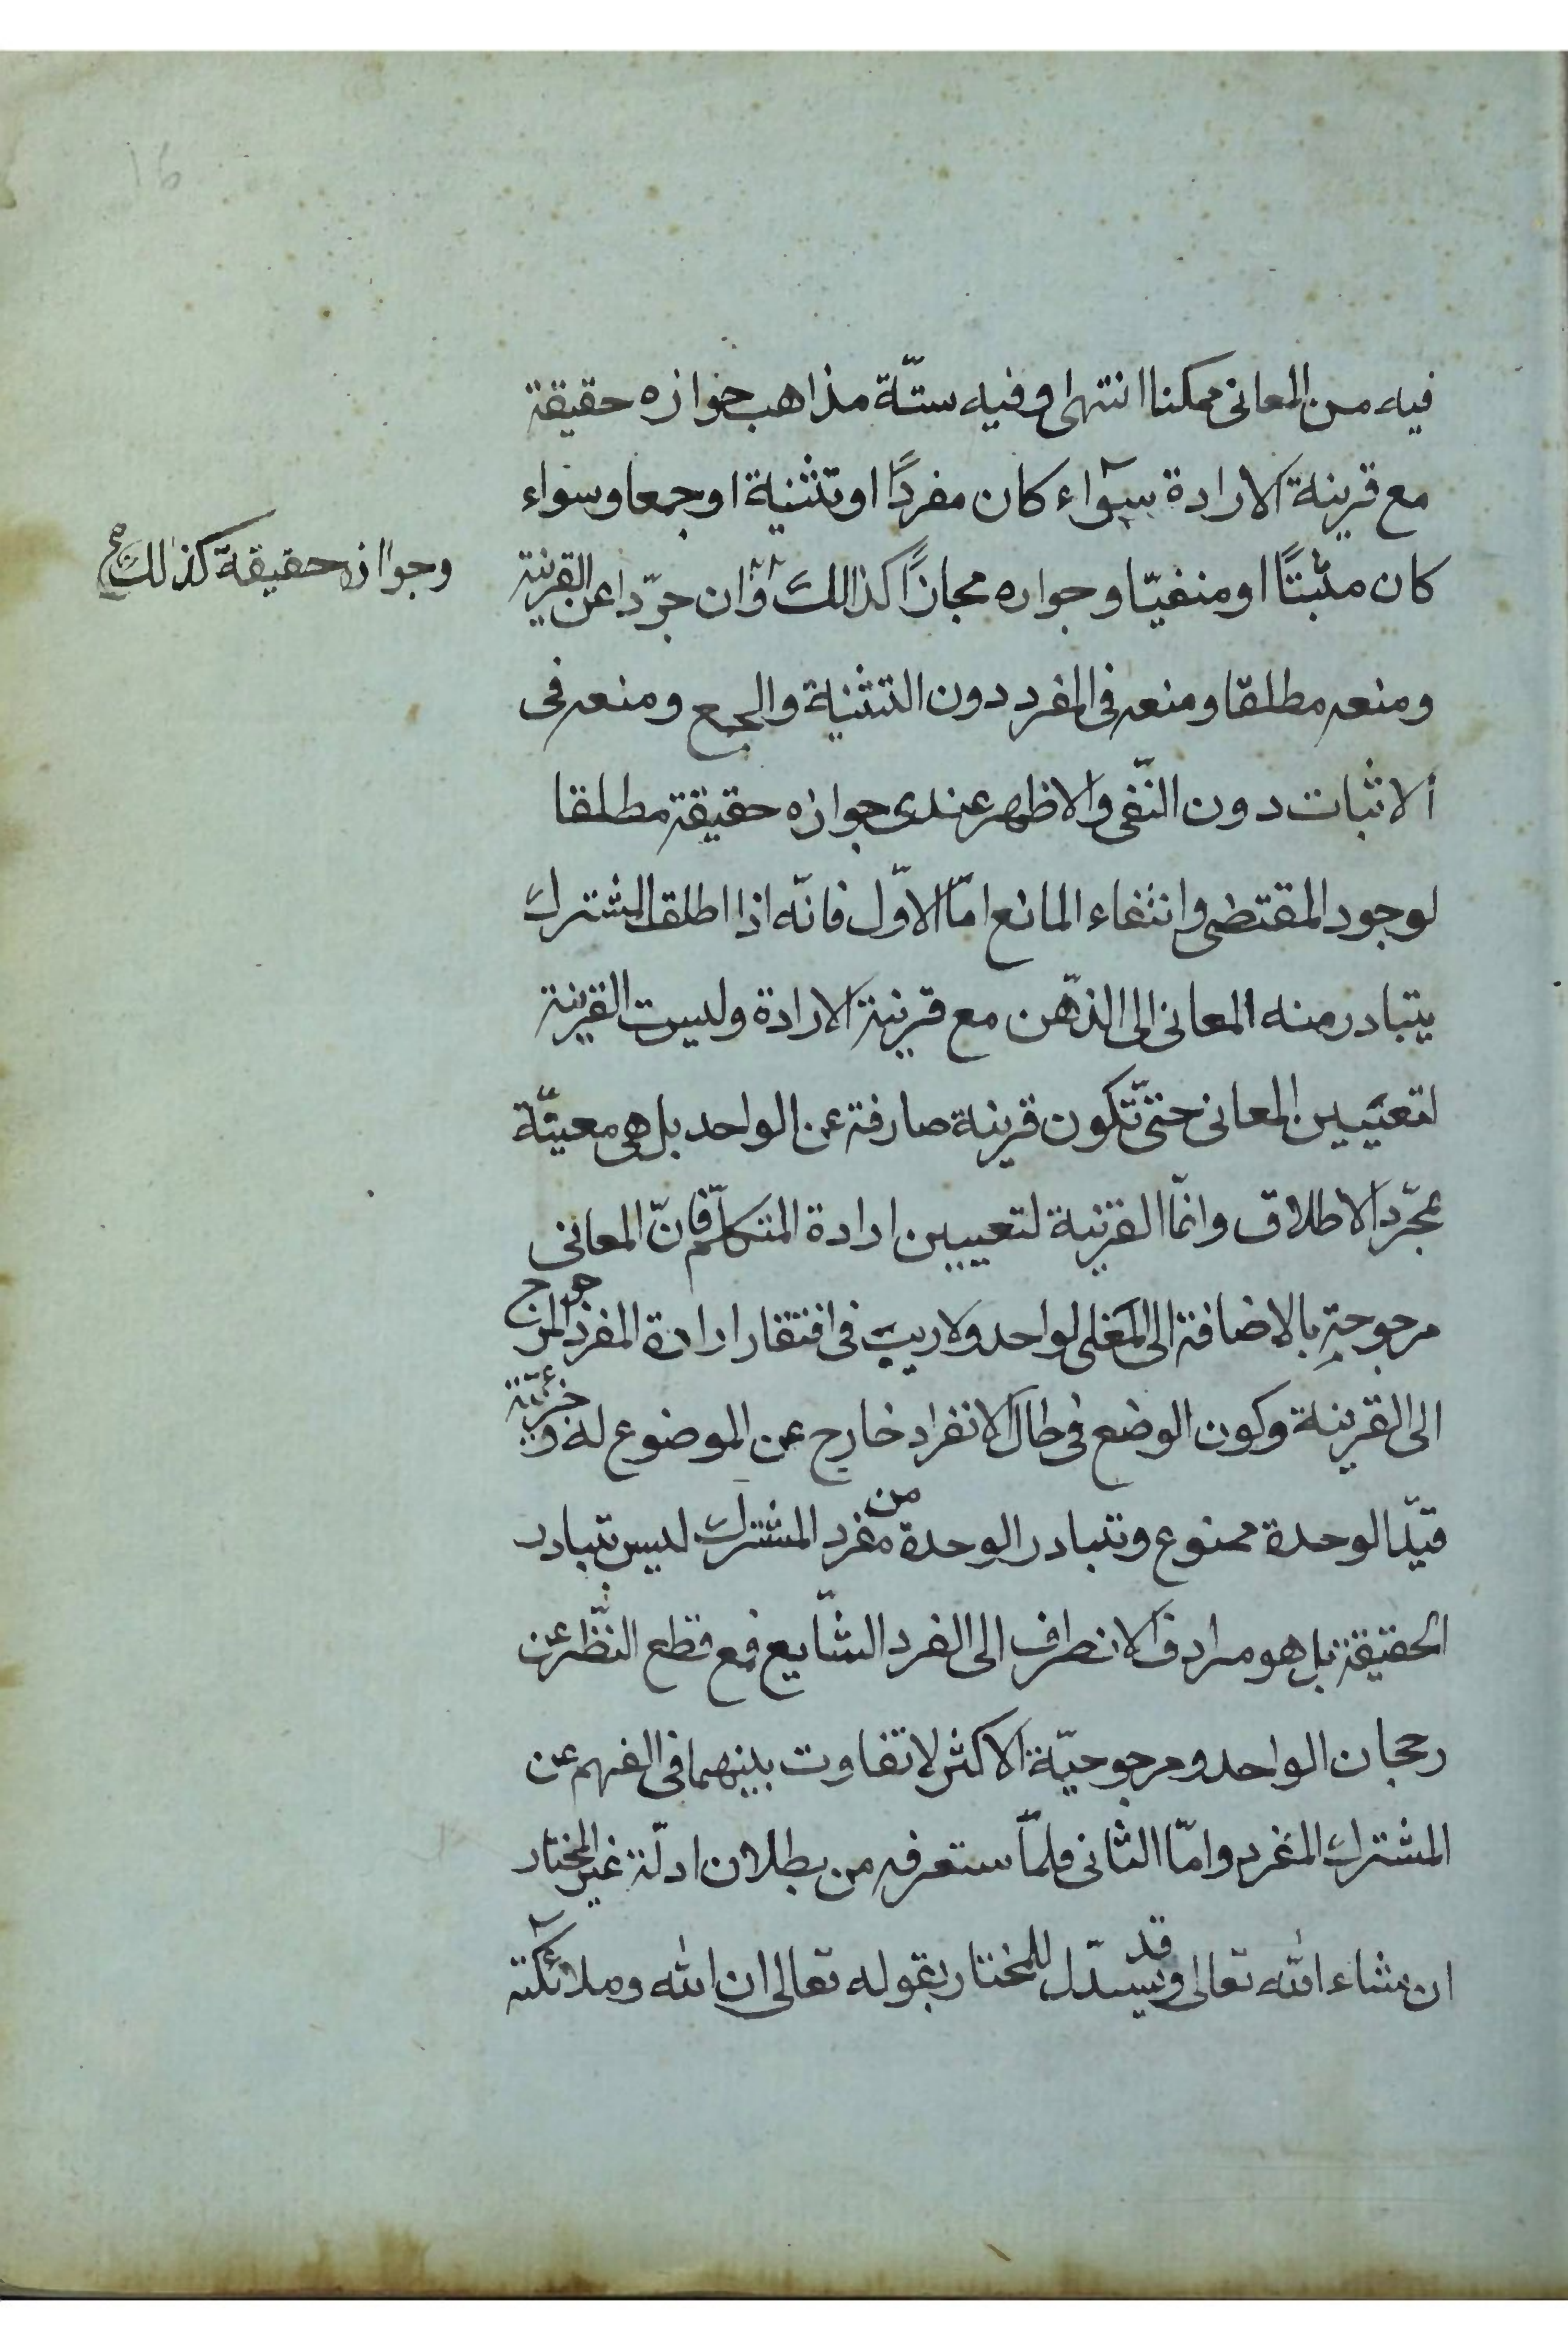 فيه من المعانى ممكنا انتهى وفيه ستّة مذاهب جوازه حقيقة
مع قرينة الارادة سوآء كان مفردًا او تثنية او جمعا وسواء
كان مثبتًا او منفيّا وجوازه مجازًا كذالك وان جرّدا عن القرينة
وجوازه حقيقة كذلك
ومنعه مطلقا ومنعه فى المفرد دون التثنية والجمع ومنعه فى
الاثبات دون النّفى والاظهر عندى جوازه حقيقة مطلقا
لوجود المقتضى وانتفاء المانع امّا الاوّل فانّه اذا اطلق المشترك
يتبادر منه المعانى الى الذّهن مع قرينة الارادة وليست القرينة
لتعيين المعانى حتّى تكون قرينة صارفة عن الواحد بل هى معيّنة
بمجرّد الاطلاق وانمّا القرينة لتعيين ارادة المتكلّم فانّ المعانى
مرجوحة بالاضافة الى المعنى لواحد ولا ريب فى افتقار ارادة المفرد المرجوح
الى القرينة وكون الوضع فى حال الانفراد خارج عن الموضوع له وجزئيّة
قيد الوحدة ممنوع وتبادر الوحدة من مفرد المشترك ليس تبادر
الحقيقة بل هو مرادف الانصراف الى الفرد الشّايع فمع قطع النّظر عن
رجحان الواحد ومرجوحيّة الاكثر لا تفاوت بينهما فى الفهم عن
المشترك المفرد وامّا الثانى فلمّا ستعرفه من بطلان ادلّة غير المختار
ان شاء الله تعالى وقد يستدّل للمختار بقوله تعالى ان الله وملائكته